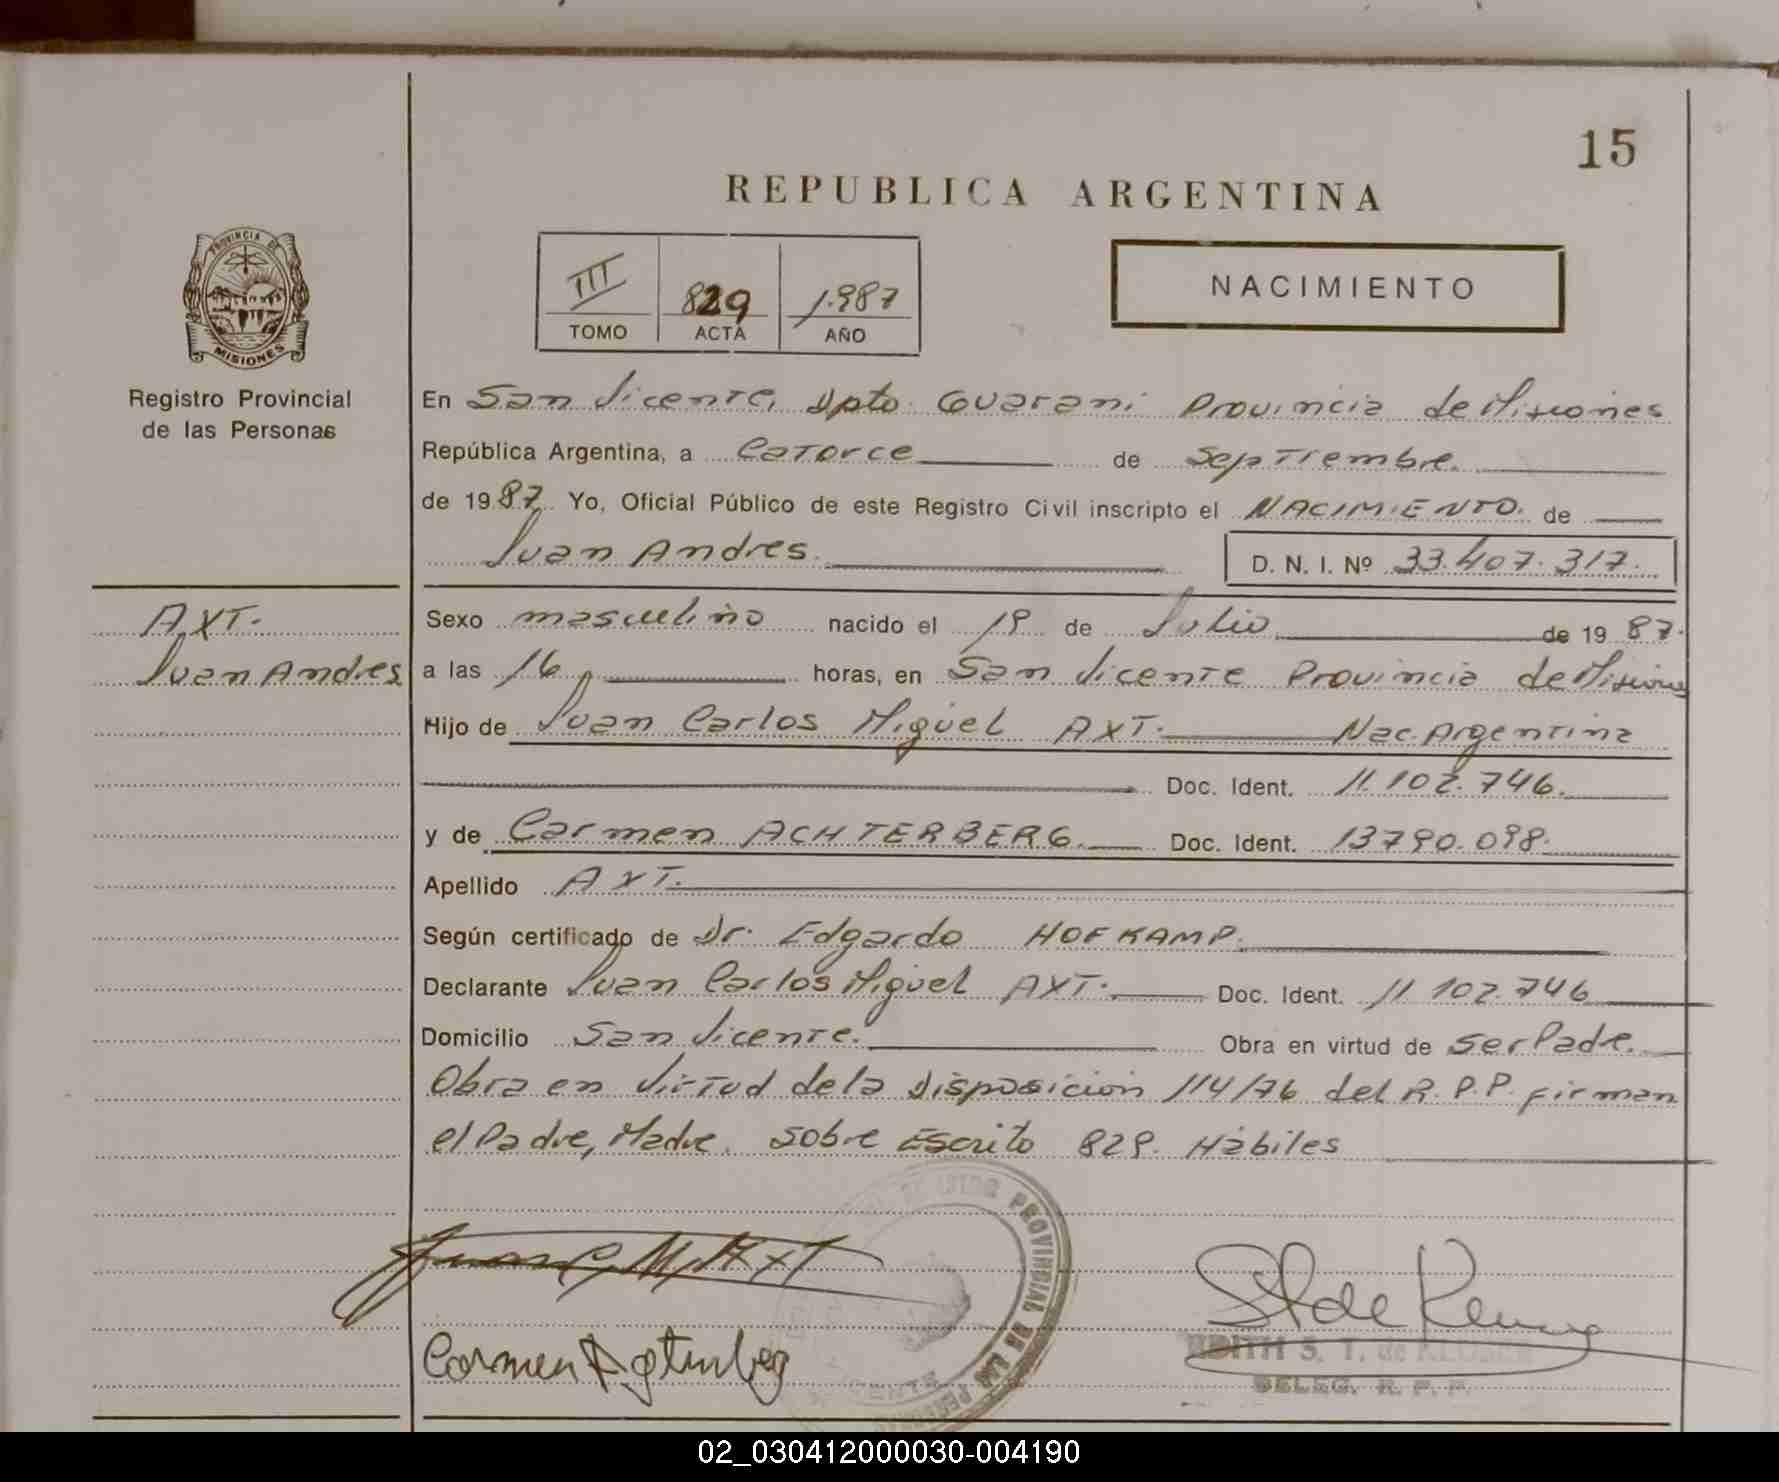 15
REPUBLICA ARGENTINA
III 829 1.987
TOMO ACTA AÑO
NACIMIENTO
PROVINCIA DE
MISIONES
Registro Provincial
de las Personas
En San Vicente, Dpto. Guarani Provincia de Misiones
República Argentina, a Catorce de Septiembre.
de 1987. Yo, Oficial Público de este Registro Civil inscripto el NACIMIENTO. de
Juan Andres. D. N. I. Nº 33.407.317.
AXT.
Juan Andres
Sexo masculino nacido el 19 de Julio de 1987.
a las 16 horas, en San Vicente Provincia de Misiones
Hijo de Juan Carlos Miguel AXT. Nac. Argentina
Doc. Ident. 11.102.746.
y de Carmen ACHTERBERG. Doc. Ident. 13790.098.
Apellido AXT.
Según certificado de Dr. Edgardo HOFKAMP.
Declarante Juan Carlos Miguel AXT. Doc. Ident. 11.102.746
Domicilio San Vicente. Obra en virtud de ser Padre.
Obra en virtud de la Disposicion 114/76 del R.P.P. firman
el Padre, Madre. Sobre Escrito 829. Hábiles
Juan C. M. Axt
PROVINCIAL DE LAS
EDITH S. T. de
DELEG. R. P. P.
Carmen
02_030412000030-004190